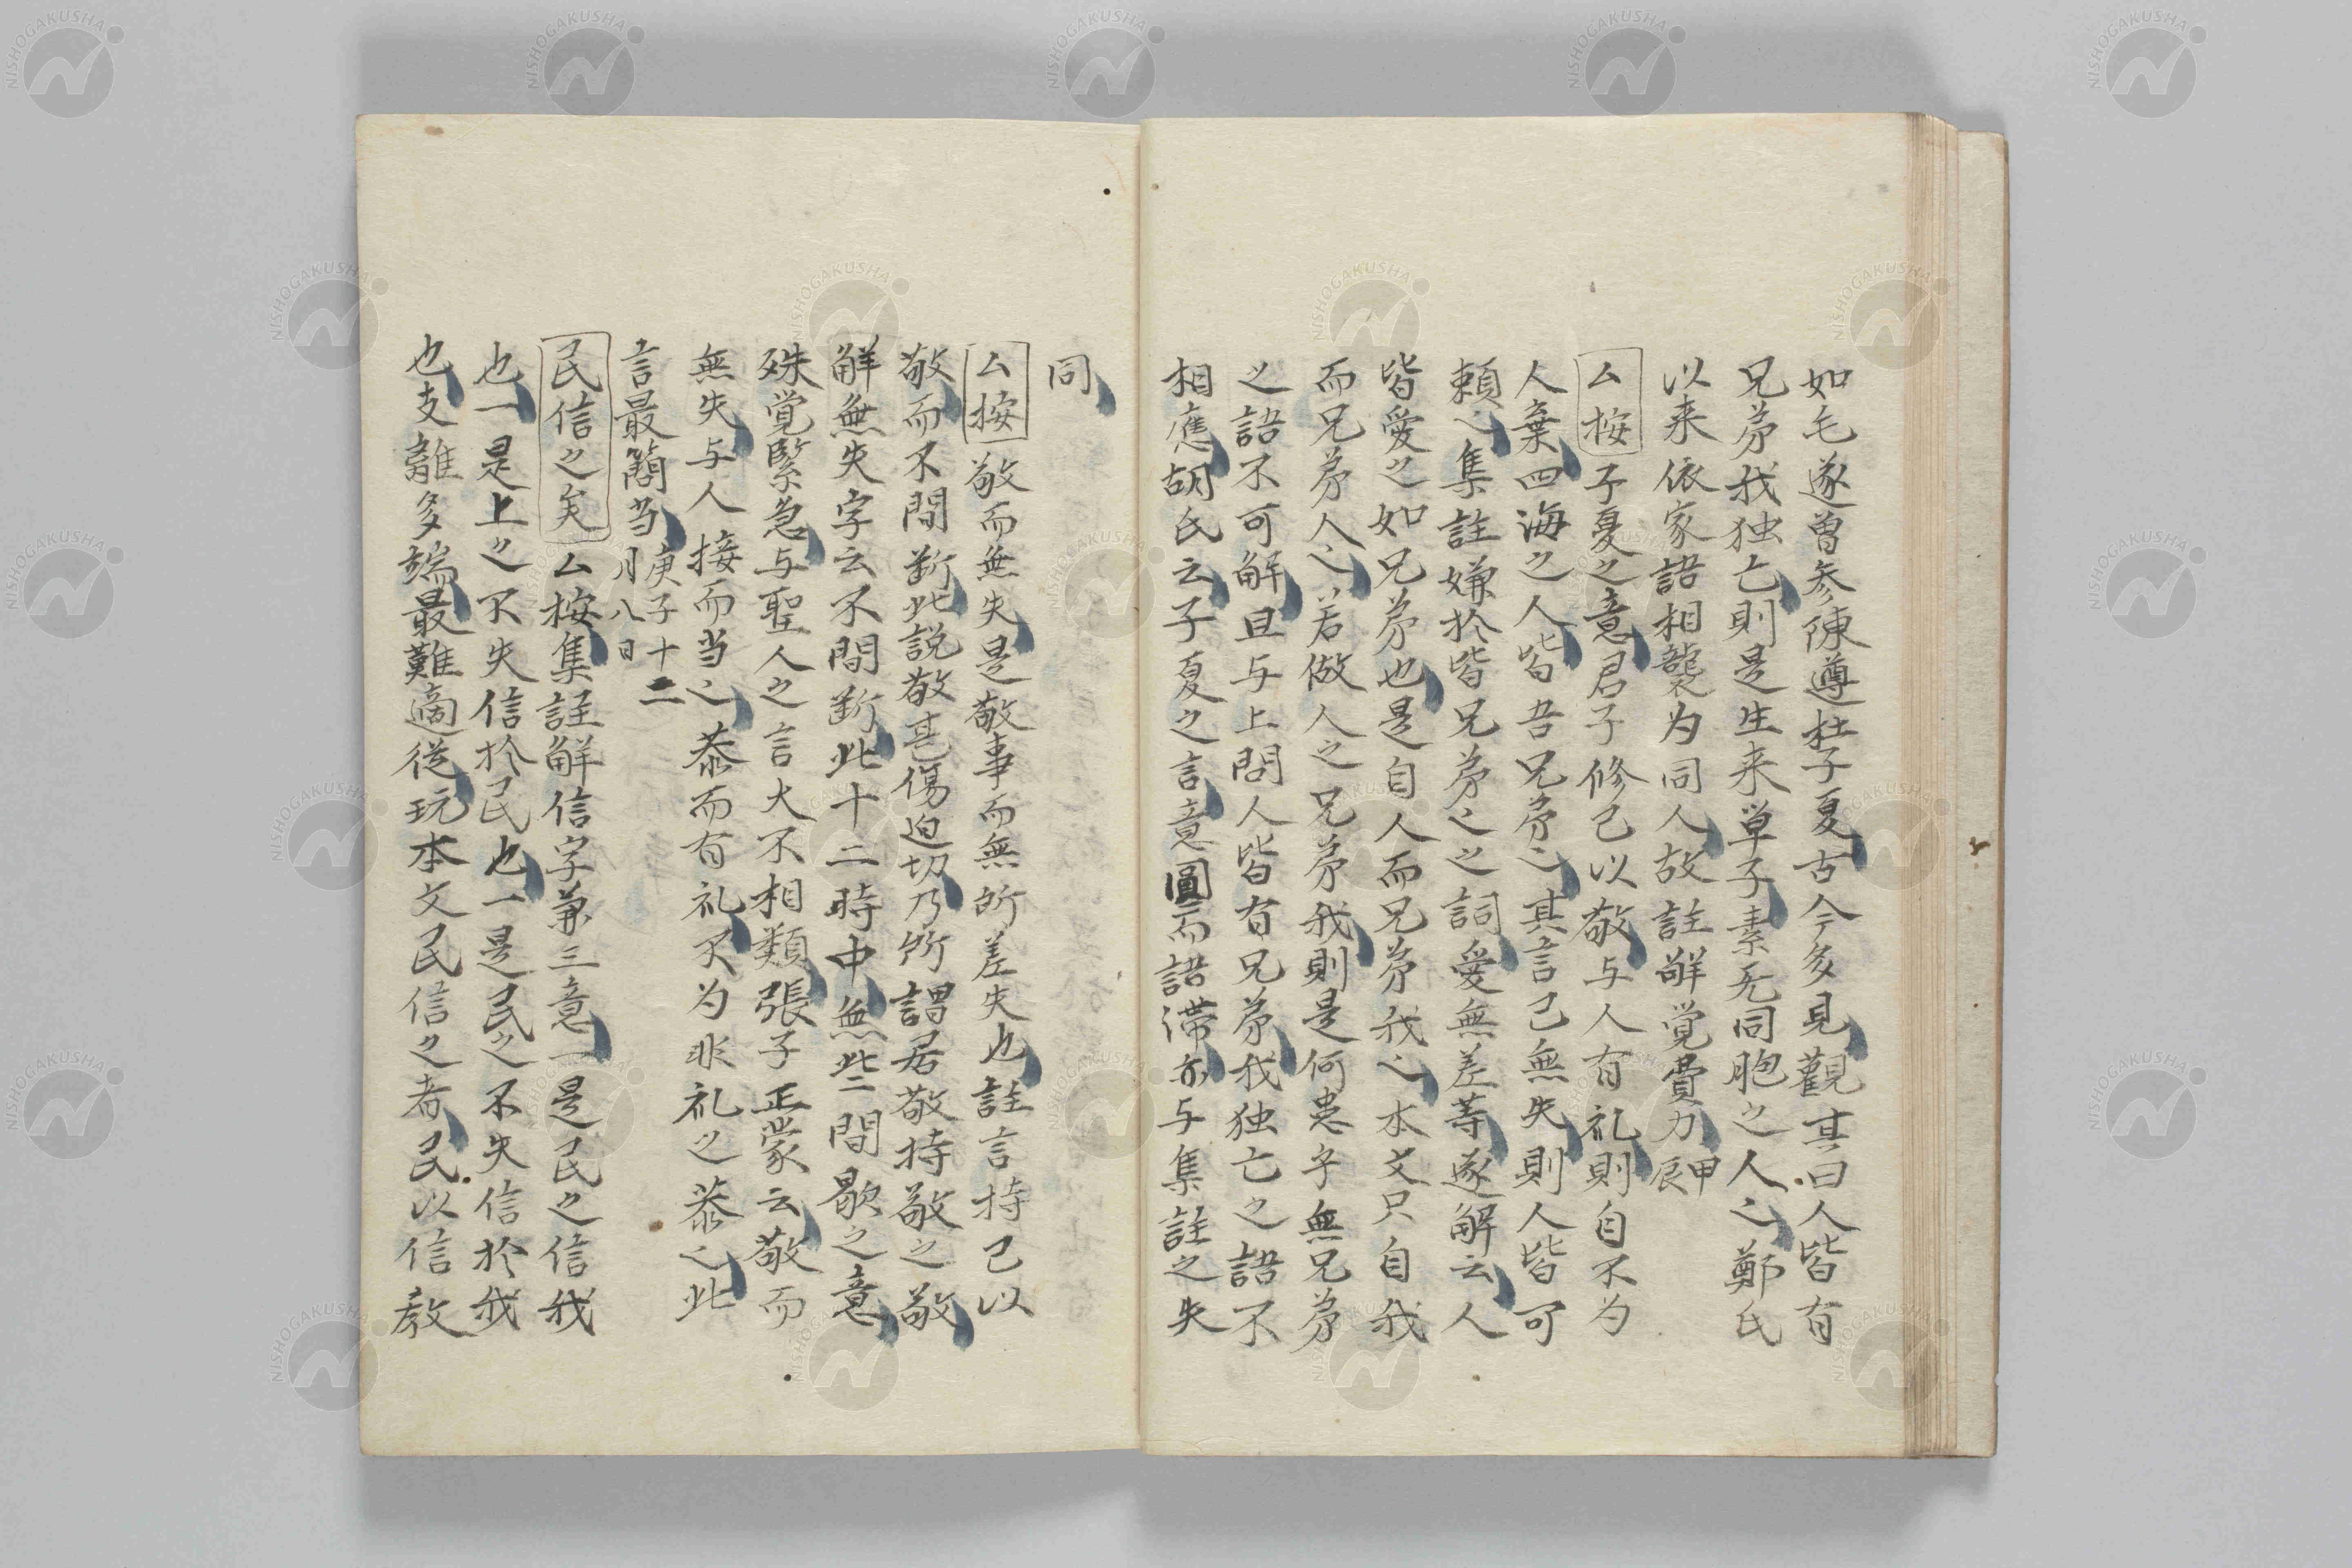 如毛遂曾参陳遵杜子夏古今多見觀其曰人皆有
兄弟我独亡則是生来単子素无同胞之人也鄭氏
以来依家語相襲为同人故註解覚費力甲辰
厶按子夏之意君子修己以敬与人有礼則自不为
人棄四海之人皆吾兄弟也其言已無失則人皆可
頼也集註嫌於皆兄弟也之詞愛無差等遂解云人
皆愛之如兄弟也是自人而兄弟我也本文只自我
而兄弟人也若做人之兄弟我則是何患乎無兄弟
之語不可解且与上問人皆有兄弟我独亡之語不
相應胡氏云子夏之言意圓而語滞亦与集註之失
同
厶按敬而無失是敬事而無所差失也註言持己以
敬而不間断此説敬甚傷迫切乃所謂居敬持敬之敬
解無失字云不間断此十二時中無些間歇之意
殊覚緊急与聖人之言大不相類張子正蒙云敬而
無失与人接而当也恭而有礼不为非礼之恭也此
言最簡当庚子十二月八日
民信之矣厶按集註解信字兼三意一是民之信我
也一是上之不失信於民也一是民之不失信於我
也支離多端最難適従玩本文民信之者民以信教